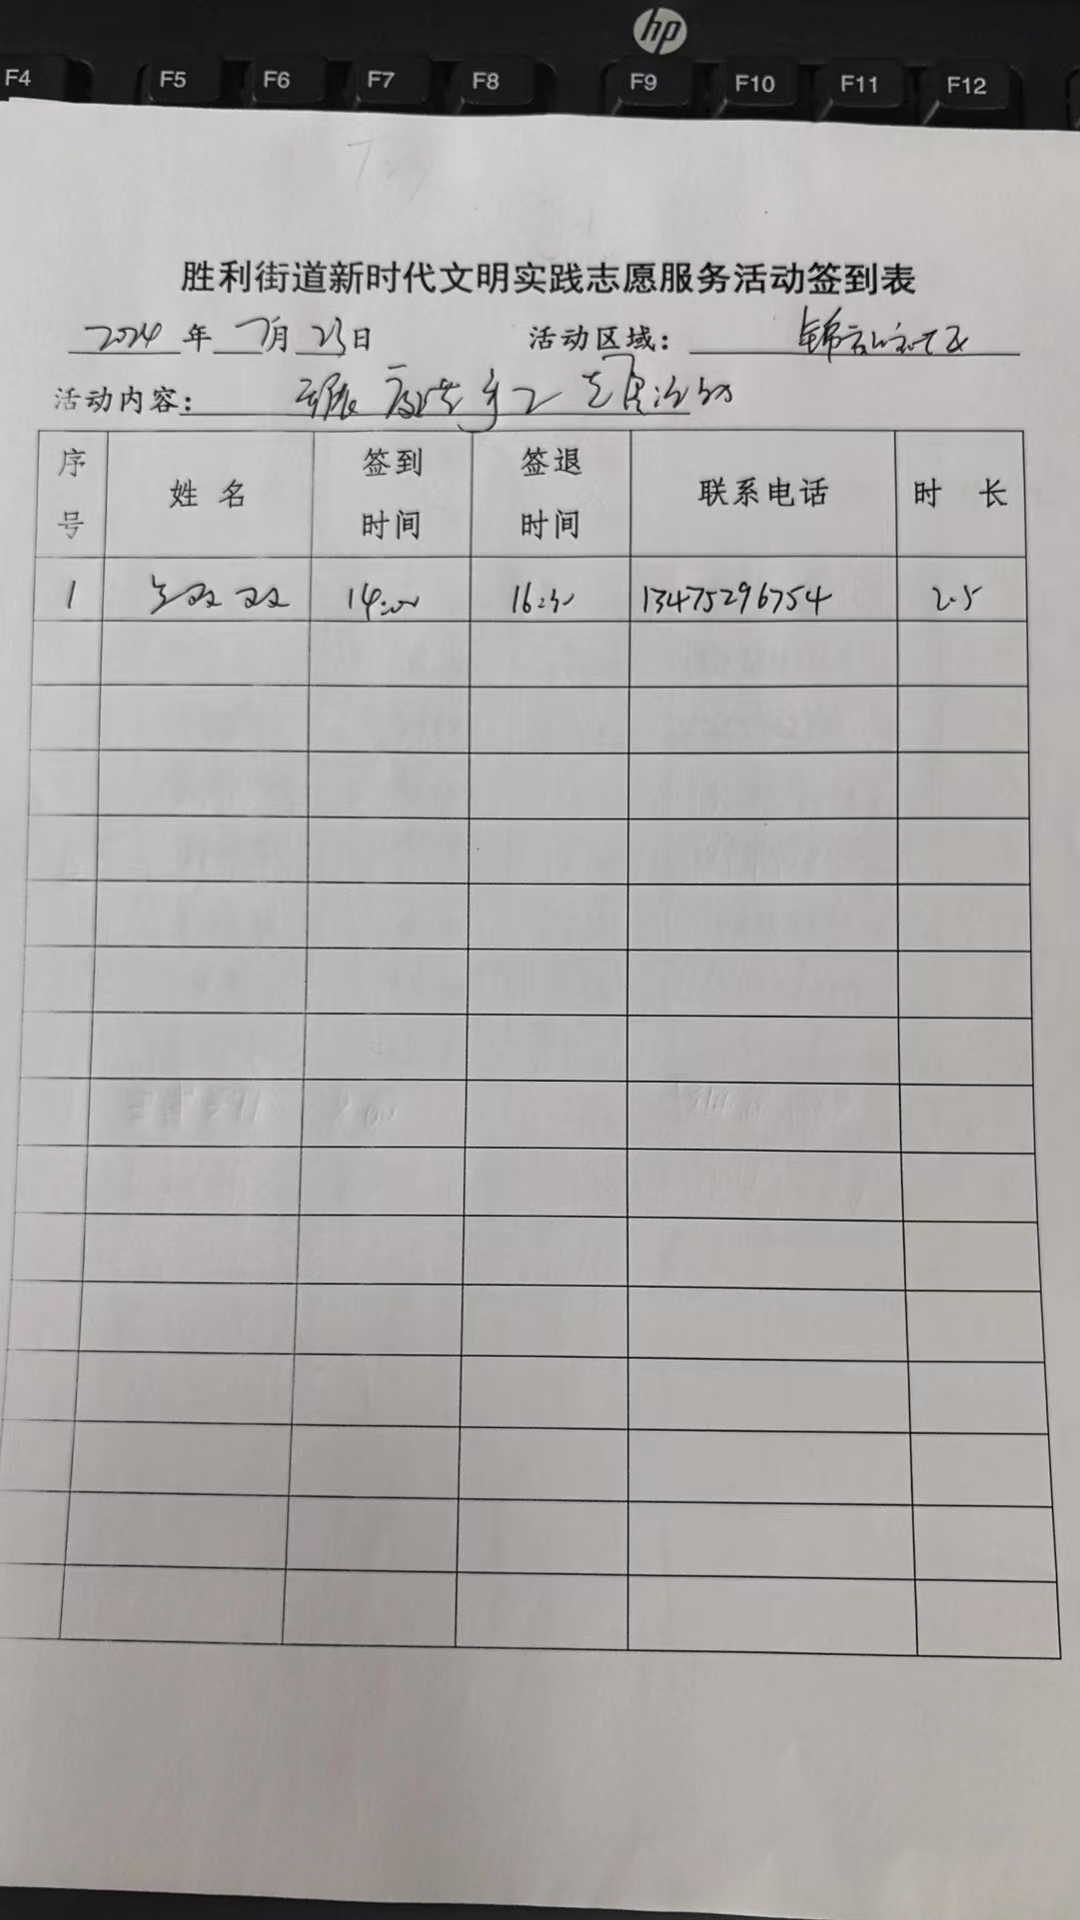 hp
F4 F5 F6 F7 F8 F9 F10 F11 F12
胜利街道新时代文明实践志愿服务活动签到表
2024年7月23日 活动区域：锦
活动内容：开展 手工
序号 姓名 签到时间 签退时间 联系电话 时长
1 双双 14:00 16:30 13475296754 2.5